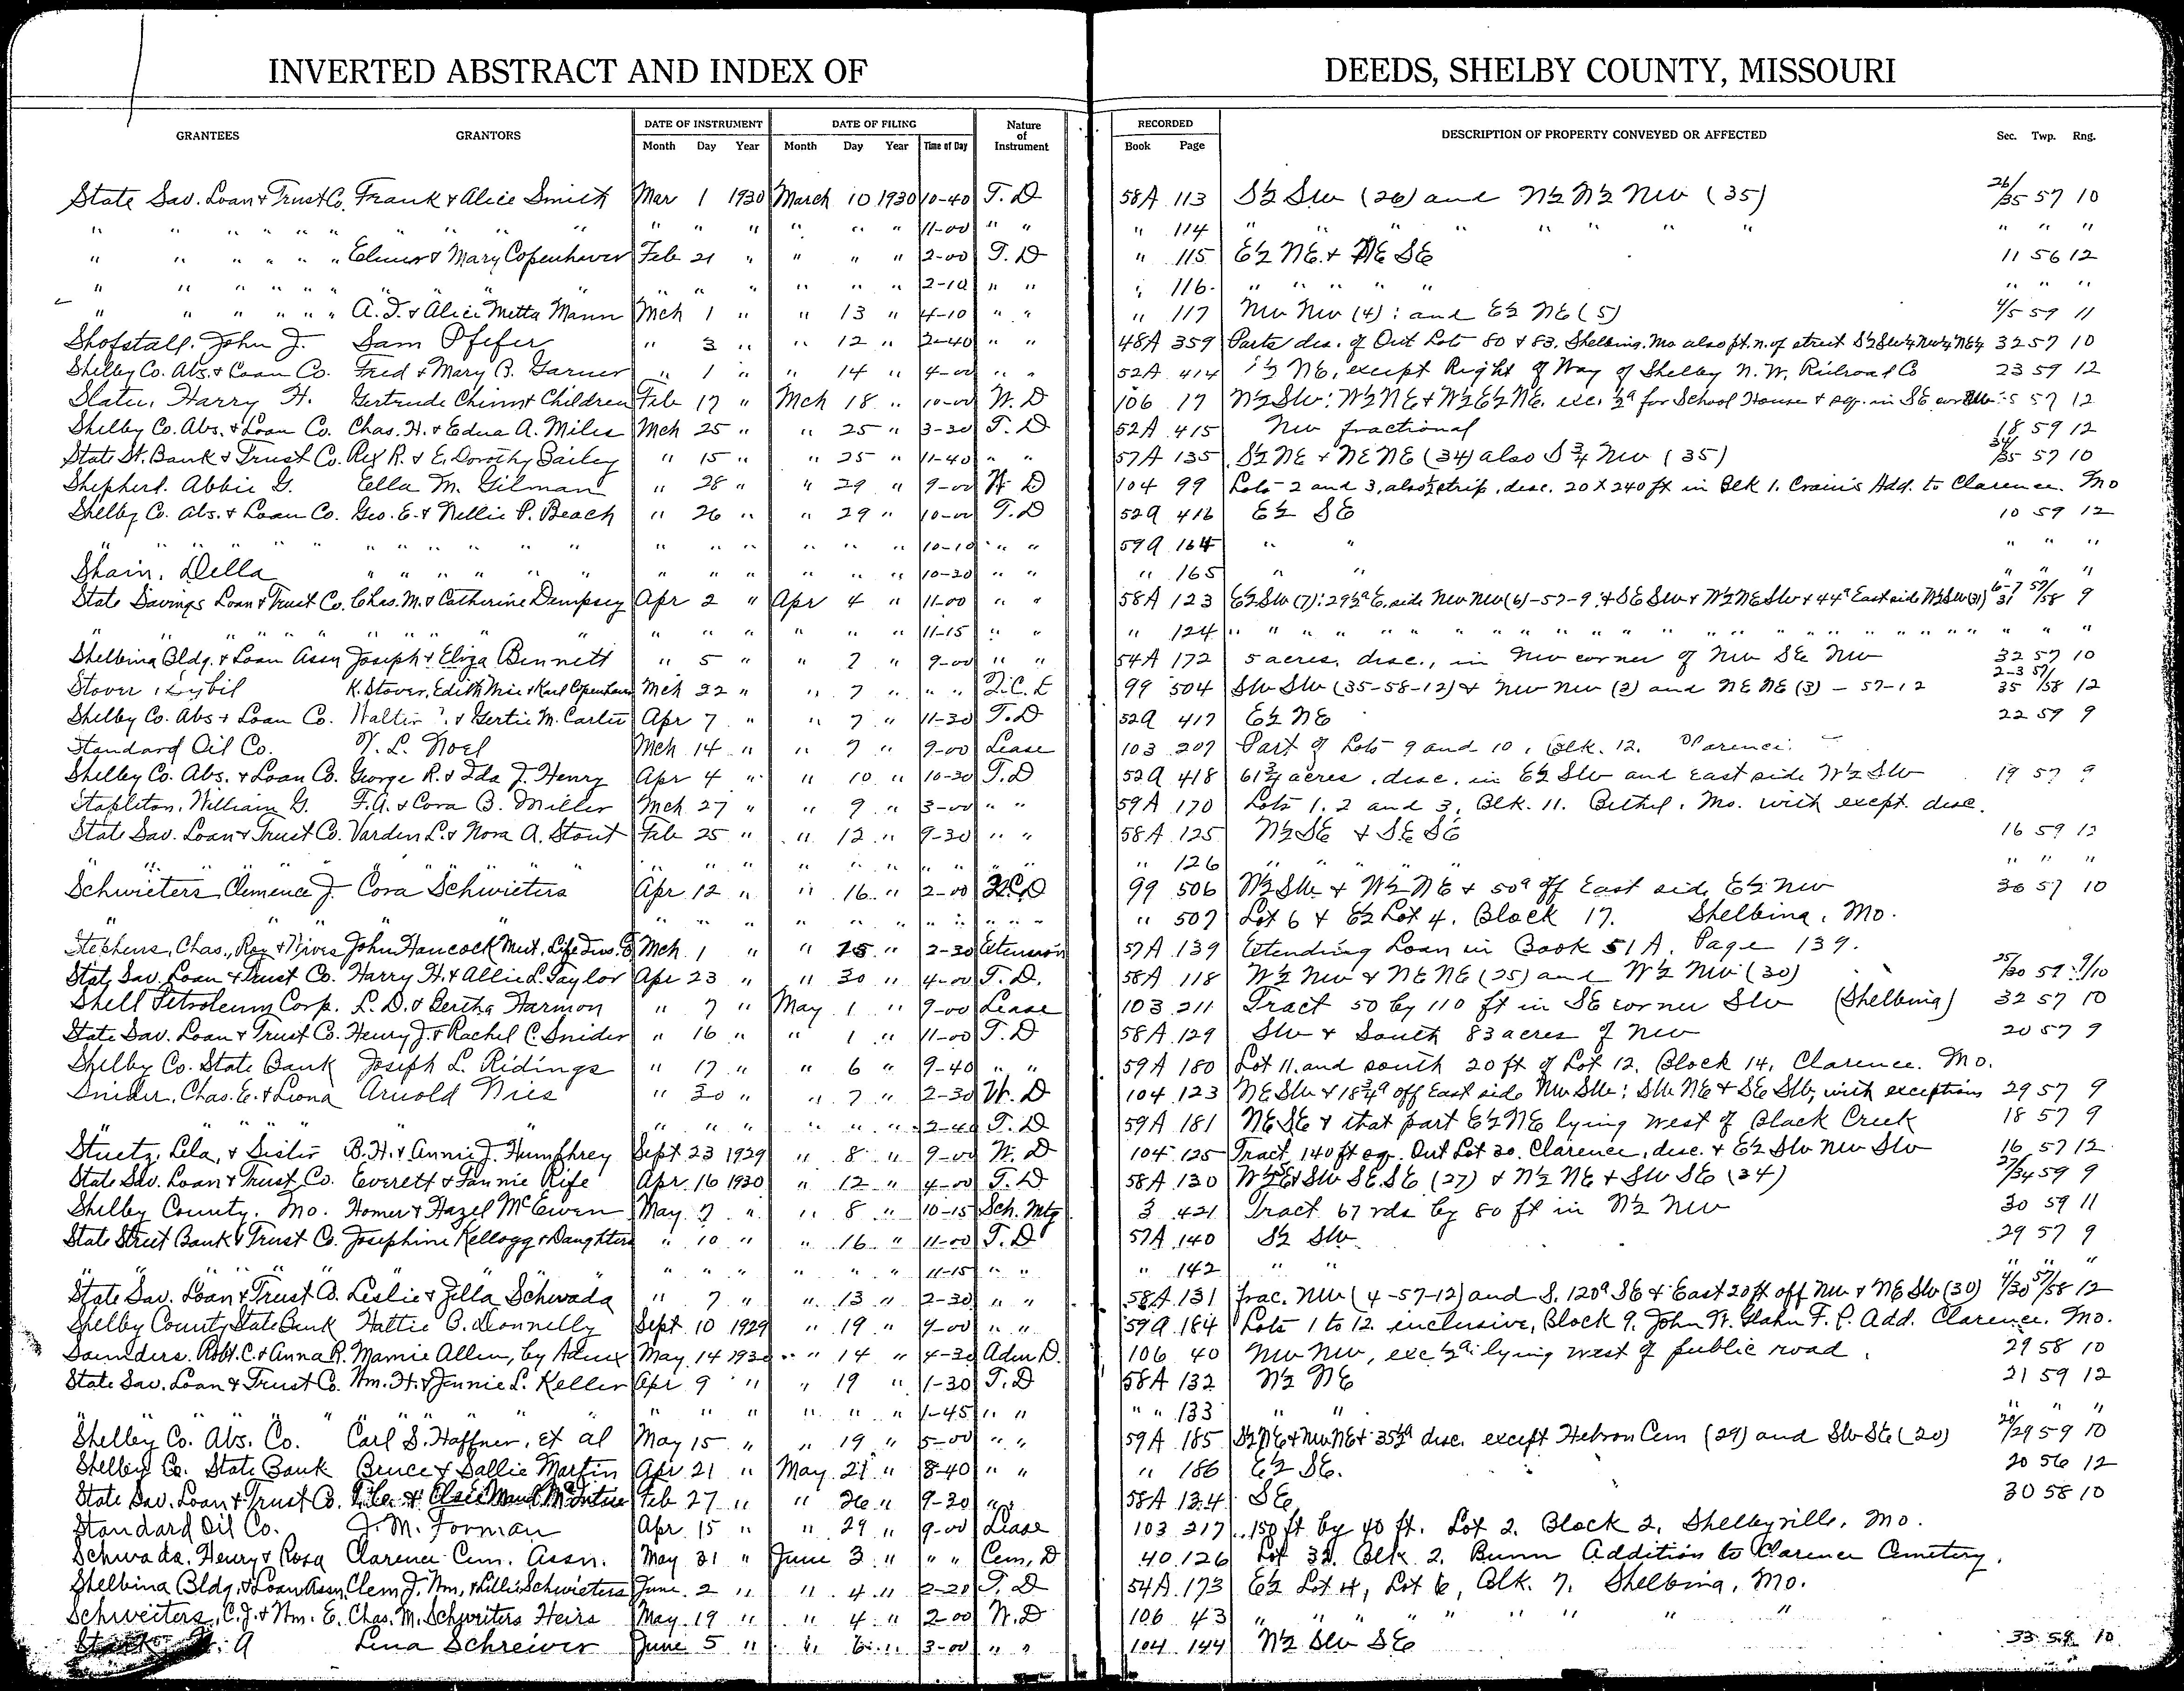 INVERTED ABSTRACT AND INDEX OF DEEDS, SHELBY COUNTY, MISSOURI
GRANTEES GRANTORS DATE OF INSTRUMENT Month Day Year DATE OF FILING Month Day Year Time of Day Nature of Instrument RECORDED Book Page DESCRIPTION OF PROPERTY CONVEYED OR AFFECTED Sec. Twp. Rng.
State Sav. Loan & Trust Co. Frank & Alice Smith Mar 1 1930 March 10 1930 10-40 T. D 58A 113 S½ SW (26) and N½ N½ NW (35) 26/35 57 10
" " " " " " " " " " " " " " " " 11-00 " " " 114 " " " " " " " " " "
" " " " " " Elmer & Mary Copenhaver Feb 21 " " " " 2-00 T. D " 115 E½ NE & NE SE 11 56 12
" " " " " " " " " " " " " " " 2-10 " " " 116 " " " " " " " "
" " " " " " A. T. & Alice Metta Mann Mch 1 " " 13 " 4-10 " " " 117 NW NW (4): and E½ NE (5) 4/5 59 11
Shofstall, John J. Sam Pfefer " 3 " " 12 " 2-40 " " 48A 359 Parts des. of Out Lots 80 & 83, Shelbina, Mo also pt. n. of street S½ SW¼ NW¼ NE¼ 32 57 10
Shelby Co. Abs. & Loan Co. Fred & Mary B. Garner " 1 " " 14 " 4-00 " " 52A 414 ½ NE, except Right of Way of Shelby N. W. Railroad Co 23 59 12
Slater, Harry H. Gertrude Chinn & Children Feb 17 " Mch 18 " 10-00 W. D 106 17 N½ SW: W½ NE & W½ E½ NE, exc. ½ª for School House & sqr. in SE cor 5 57 12
Shelby Co. Abs. & Loan Co. Chas. H. & Edna A. Miles Mch 25 " " 25 " 3-30 T. D 52A 415 NW fractional 18 59 12
State St. Bank & Trust Co. Rex R. & E. Dorothy Bailey " 15 " " 25 " 11-40 " " 57A 135 S½ NE & NE NE (34) also S ¾ NW (35) 34/35 57 10
Shepherd, Abbie G. Ella M. Gilman " 28 " " 29 " 9-00 W D 104 99 Lots 2 and 3, also ½ strip, desc. 20 X 240 ft in Blk 1. Crain's Add. to Clarence. Mo
Shelby Co. Abs. & Loan Co. Geo. E. & Nellie P. Beach " 26 " " 29 " 10-00 T. D 52A 416 E½ SE 10 59 12
" " " " " " " " " " " " " " " " " " 10-10 " " 59A 164 " " " " "
Shain, Della " " " " " " " " " " " " 10-30 " " " 165 " " " " "
State Savings Loan & Trust Co. Chas. M. & Catherine Dempsey Apr 2 " Apr 4 " 11-00 " " 58A 123 E½ SW (7): 29½ª E. side NW NW (6)-57-9, & SE SW & W½ NE SW & 44ª East side W½ SW (31) 6-7/31 57/58 9
" " " " " " " " " " " " " " " " 11-15 " " " 124 " " " " " " " " " " " " " " " "
Shelbina Bldg. & Loan Assn Joseph & Eliza Bennett " 5 " " 7 " 9-00 " " 54A 172 5 acres, desc., in NW corner of NW SE NW 32 57 10
Stover, Sybil K. Stover, Edith Mae & Karl Copenhaver Mch 22 " " 7 " " " Q. C. D 99 504 SW SW (35-58-12) & NW NW (2) and NE NE (3) - 57-12 2-3/35 57/58 12
Shelby Co. Abs & Loan Co. Walter & Gertie M. Carter Apr 7 " " 7 " 11-30 T. D 52A 417 E½ NE 22 59 9
Standard Oil Co. L. Noel Mch 14 " " 7 " 9-00 Lease 103 207 Part of Lots 9 and 10, Blk. 12. Clarence.
Shelby Co. Abs. & Loan Co. George R. & Ida J. Henry Apr 4 " " 10 " 10-30 T. D 52A 418 61¾ acres, desc. in E½ SW and East side W½ SW 19 57 9
Stapleton, William G. F. A. & Cora B. Miller Mch 27 " " 9 " 3-00 " " 59A 170 Lots 1, 2 and 3, Blk. 11. Bethel, Mo. with except. desc.
State Sav. Loan & Trust Co. Varden L. & Nora A. Stout Feb 25 " " 12 " 9-30 " " 58A 125 N½ SE & SE SE 16 59 12
" " " " " " " " " " " " " " " " " 126 " " " " " " " "
Schwieters, Clemence J. Cora Schwieters Apr 12 " " 16 " 2-00 Q.C.D 99 506 N½ SW & W½ NE & 50ª off East side E½ NW 36 57 10
" " " " " " " " " " " " " " " 507 Lot 6 & E½ Lot 4, Block 17. Shelbina, Mo.
Stephens, Chas., Roy & Nives John Hancock Mut. Life Ins. Co Mch 1 " " 15 " 2-30 Extension 57A 139 Extending Loan in Book 51A, Page 139.
State Sav. Loan & Trust Co. Harry H. & Allie L. Taylor Apr 23 " " 30 " 4-00 T. D. 58A 118 W½ NW & NE NE (25) and W½ NW (30) 25/30 57 9/10
Shell Petroleum Corp. L. D. & Bertha Harmon " 7 " May 1 " 9-00 Lease 103 211 Tract 50 by 110 ft in SE corner SW (Shelbina) 32 57 10
State Sav. Loan & Trust Co. Henry J. & Rachel C. Snider " 16 " " 1 " 11-00 T. D 58A 129 SW & South 83 acres of NW 20 57 9
Shelby Co. State Bank Joseph L. Ridings " 17 " " 6 " 9-40 " " 59A 180 Lot 11 and south 20 ft of Lot 12, Block 14, Clarence. Mo.
Snider, Chas. E. & Liona Arnold Nies " 30 " " 7 " 2-30 W. D 104 123 NE SW & 18¾ª off East side NW SW: SW NE & SE SW, with exceptions 29 57 9
" " " " " " " " " " " 2-40 T. D 59A 181 NE SE & that part E½ NE lying west of Black Creek 18 57 9
Stuetz, Lela, & Sister B. H. & Annie J. Humphrey Sept 23 1929 " 8 " 9-00 W. D 104 125 Tract, 140 ft sq. Out Lot 30. Clarence, desc. & E½ SW NW SW 16 57 12
State Sav. Loan & Trust Co. Everett & Fannie Rife Apr. 16 1930 " 12 " 4-00 T. D 58A 130 W½ SE & SW SE SE (27) & N½ NE & SW SE (34) 27/34 59 9
Shelby County, Mo. Homer & Hazel McEwen May 7 " " 8 " 10-15 Sch. Mtg 3 421 Tract 67 rds by 80 ft in N½ NW 30 59 11
State Street Bank & Trust Co. Josephine Kellogg & Daughters " 10 " " 16 " 11-00 T. D 57A 140 S½ SW 29 57 9
" " " " " " " " " " " 11-15 " " " 142 " " " " "
State Sav. Loan & Trust Co. Leslie & Zella Schwada " 7 " " 13 " 2-30 " " 58A 131 frac. NW (4-57-12) and S. 120ª SE & East 20 ft off NW & NE SW (30) 4/30 57/58 12
Shelby County State Bank Hattie B. Donnelly Sept 10 1929 " 19 " 9-00 " " 59A 184 Lots 1 to 12 inclusive, Block 9, John W. Glahn F. P. Add. Clarence. Mo.
Saunders, Robt. C. & Anna R. Mamie Allen, by Admx May 14 1930 " 14 " 4-30 Adm D. 106 40 NW NW, exc ½ª lying west of public road. 29 58 10
State Sav. Loan & Trust Co. Wm. H. & Jennie L. Keller Apr 9 " " 19 " 1-30 T. D 58A 132 N½ NE 21 59 12
" " " " " " " " " " " " 1-45 " " " " 133 " " " " "
Shelby Co. Abs. Co. Carl S. Haffner, et al May 15 " " 19 " 5-00 " " 59A 185 S½ NE & NW NE & 35½ª desc. except Hebron Cem (29) and SW SE (20) 20/29 59 10
Shelby Co. State Bank Bruce & Sallie Martin Apr 21 " May 21 " 8-40 " " " 186 E½ SE. 20 56 12
State Sav. Loan & Trust Co. & Maud McIntire Feb 27 " " 26 " 9-30 " " 58A 134 SE 30 58 10
Standard Oil Co. J. M. Forman Apr 15 " " 29 " 9-00 Lease 103 217 150 ft by 40 ft. Lot 2, Block 2, Shelbyville, Mo.
Schwada, Henry & Rosa Clarence Cem. Assn. May 31 " June 3 " " " Cem. D 40 126 Lot 32, Blk. 2, Bunn Addition to Clarence Cemetery.
Shelbina Bldg. & Loan Assn, Clem J. Wm. & Lillie Schwieters June 2 " " 4 " 2-20 T. D 54A 173 E½ Lot 4, Lot 6, Blk. 7, Shelbina, Mo.
Schweiters, C. J. & Wm. E. Chas. M. Schwieters Heirs May 19 " " 4 " 2-00 W. D 106 43 " " " " " " " " "
A Lena Schreiver June 5 " " 6 " 3-00 " " 104 144 N½ SW SE 33 58 10